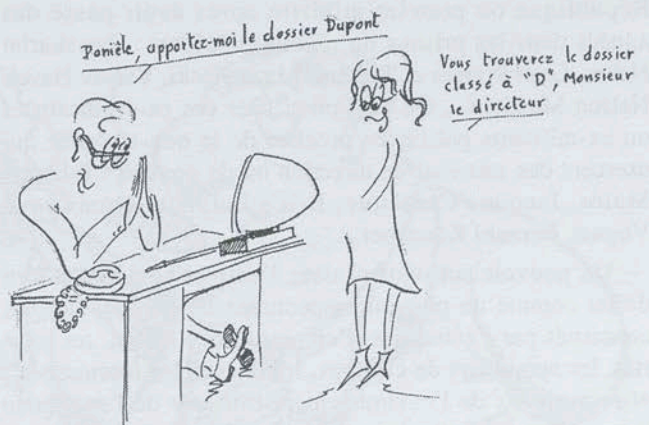 Danièle, apportez-moi le dossier Dupont
Vous trouverez le dossier
classé à "D", Monsieur
le directeur